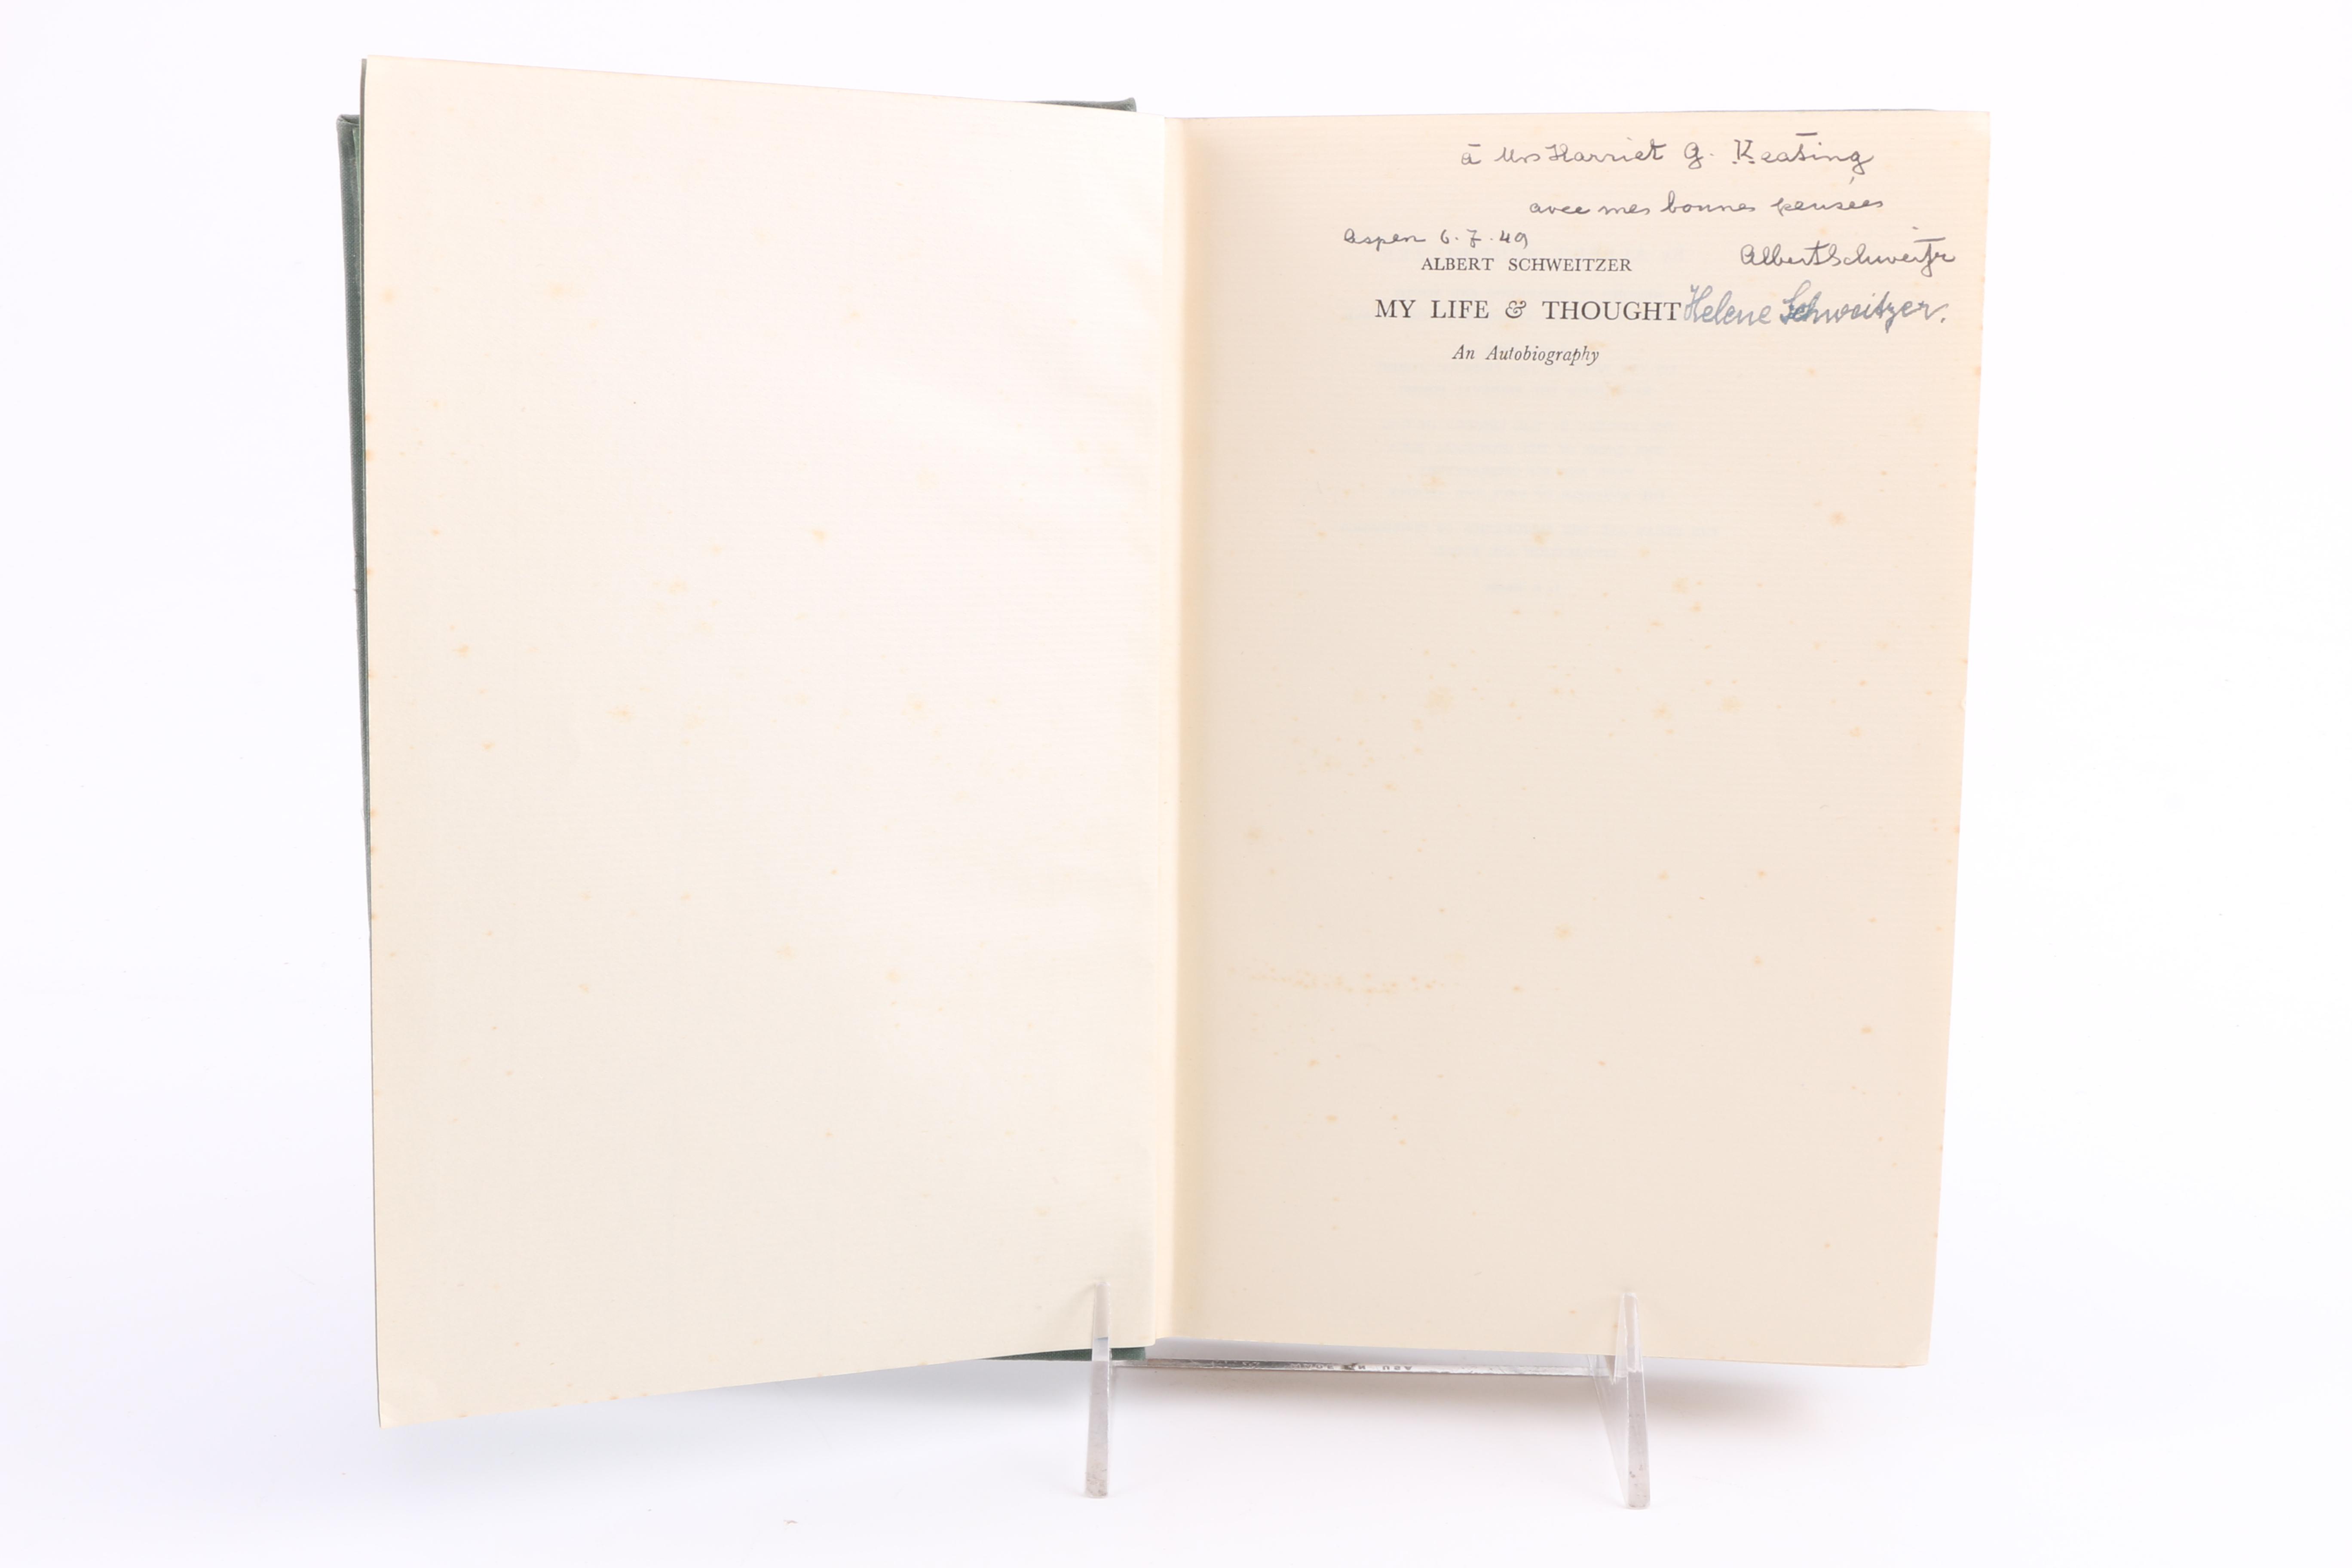 à Mrs Harriet G. Keating
avec mes bonnes pensées
Aspen 6.7.49
Albert Schweitzer
ALBERT SCHWEITZER
MY LIFE & THOUGHT
Helene Schweitzer.
An Autobiography